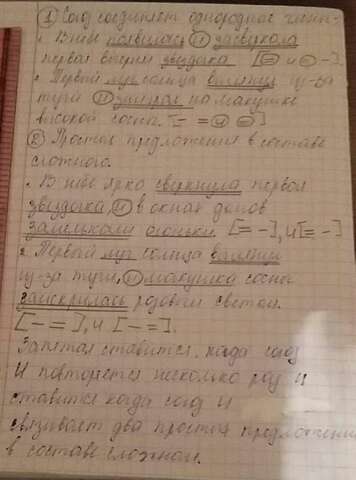 ① Союз соединяет однородные члены.
• В небе появилась и засверкала
первая вечерняя звездочка. [= и = -].
• Первый луч солнца выглянул из-за
тучи и заиграл на макушке
высокой сосны. [- = и =]
② Простые предложения в составе
сложного.
• В небе ярко сверкнула первая
звездочка, и в окнах домов
замелькали огоньки. [= -], и [= -]
• Первый луч солнца выглянул
из-за тучи, и макушка сосны
заискрилась розовым светом.
[- =], и [- =].
Запятая ставится, когда союз
И повторется несколько раз и
ставится когда союз и
связивает два простых предложения
в составе сложном.